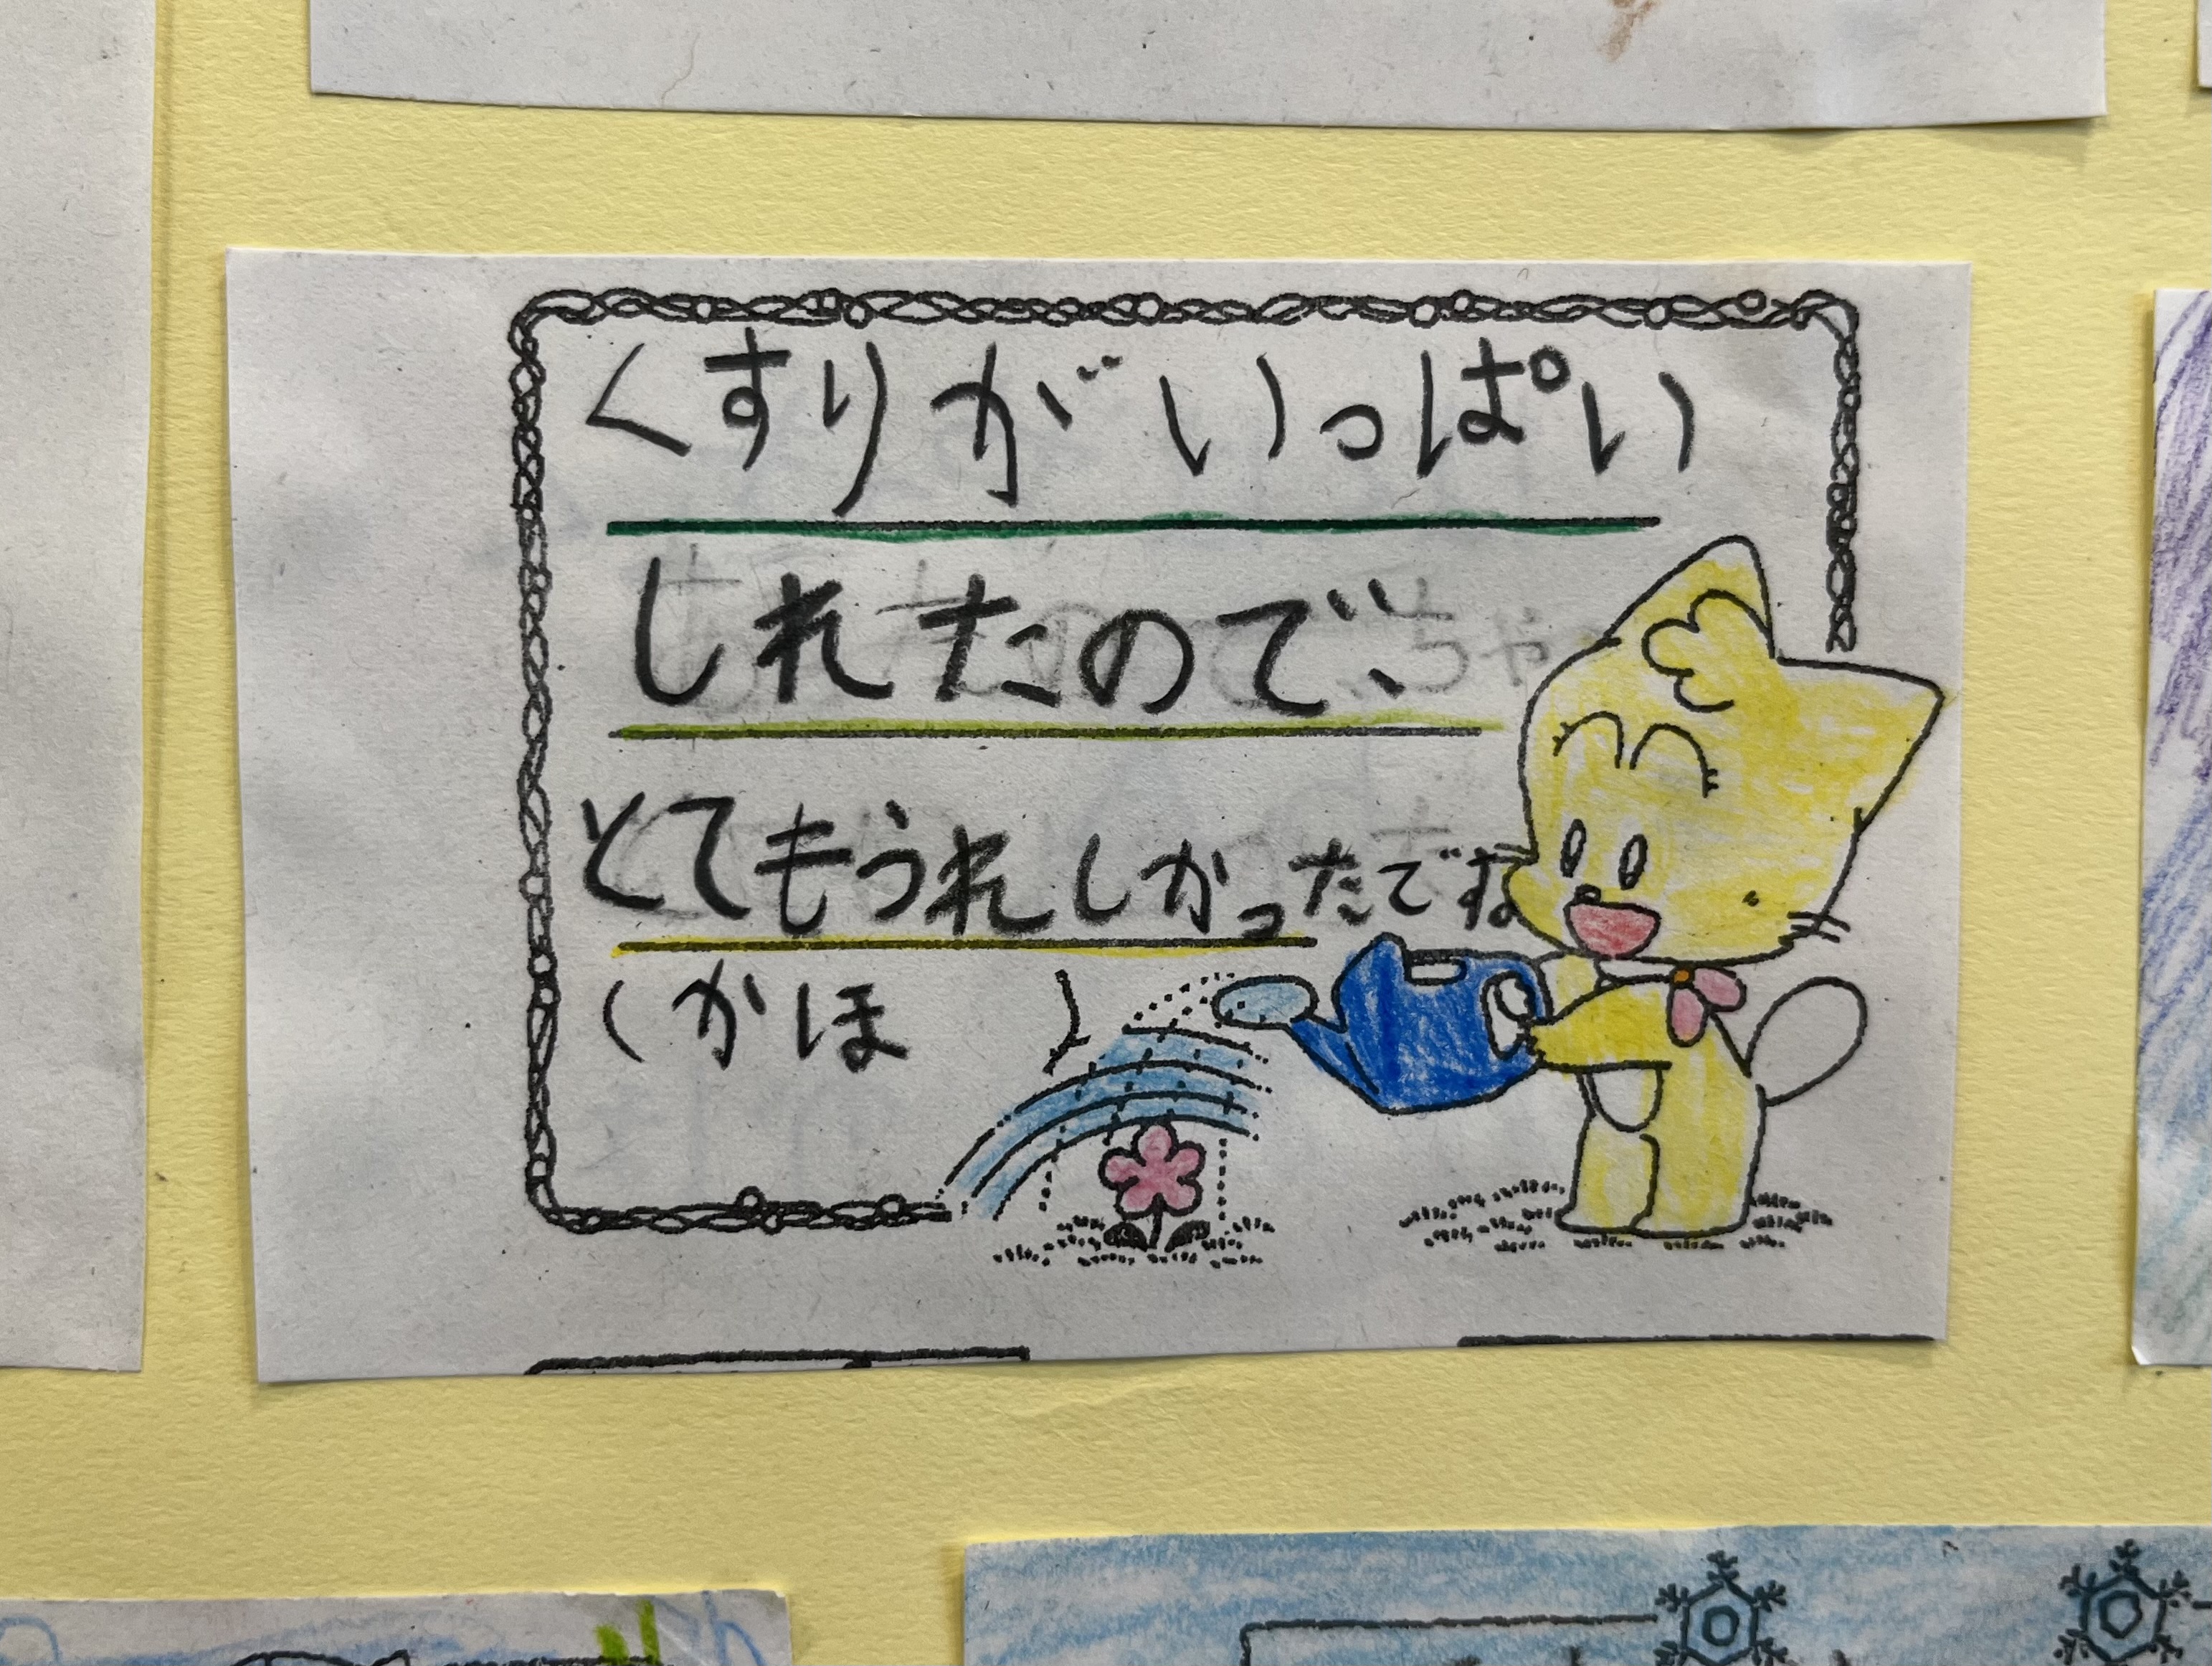 くすりがいっぱい
しれたので、
とてもうれしかったです
（かほ　）